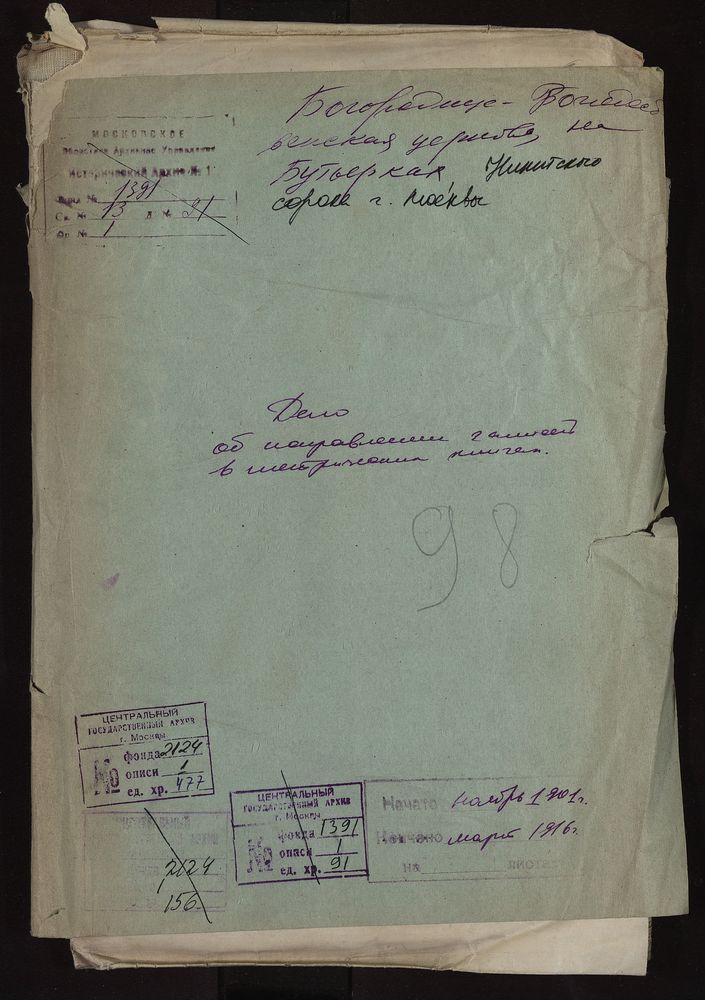 МОСКОВСКОЕ
Областное Архивное Управление
Исторический Архив № 1
Фонд № 1391
Св. № 13 д № 91
Оп. № 1
Богородице-
венская церковь, на
Бутырках Никитского
сорока г. Москвы
Дело
об направлении
в метрических книгах.
98
ЦЕНТРАЛЬНЫЙ
ГОСУДАРСТВЕННЫЙ АРХИВ
г. Москвы
№ фонда 2124
описи 1
ед. хр. 477
2124
1
156
ЦЕНТРАЛЬНЫЙ
ГОСУДАРСТВЕННЫЙ АРХИВ
г. Москвы
№ фонда 1391
описи 1
ед. хр. 91
Начато ноябрь 1901 г.
Кончено март 1916 г.
На листах